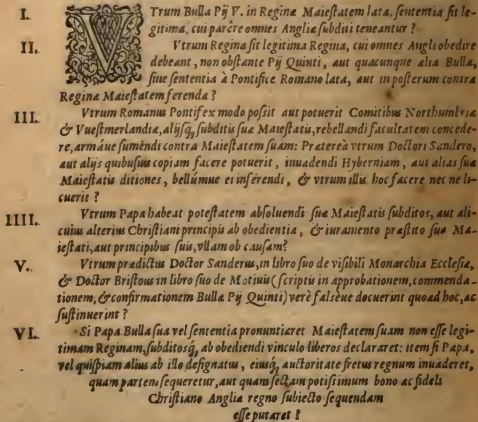 I. VTrum Bulla Pij V. in Reginæ Maiestatem lata, sententia sit le-
gitima, cui parêre omnes Angliæ subditi teneantur ?
II. Vtrum Regina sit legitima Regina, cui omnes Angli obedire
debeant, non obstante Pij Quinti, aut quacunque alia Bulla,
siue sententia à Pontifice Romano lata, aut inposterum contra
Reginæ Maiestatem ferenda ?
III. Vtrum Romanus Pontifex modo possit aut potuerit Comitibus Northumbriæ
& Vuestmerlandiæ, alijsq́, subditis suæ Maiestatis, rebellandi facultatem concede-
re, armáue sumendi contra Maiestatem suam: Præterea vtrum Doctori Sandero,
aut alijs quibusuis copiam facere potuerit, inuadendi Hyberniam, aut alias suæ
Maiestatis ditiones, bellúmue ei inferendi, & vtrum illis hoc facere nec ne li-
cuerit ?
IIII. Vtrum Papa habeat potestatem absoluendi suæ Maiestatis subditos, aut ali-
cuius alterius Christiani principis ab obedientia, & iuramento præstito suæ Ma-
iestati, aut principibus suis, vllam ob causam?
V. Vtrum prædictus Doctor Sanderus, in libro suo de visibili Monarchia Ecclesiæ,
& Doctor Bristous in libro suo de Motiuis (scriptis in approbationem, commenda-
tionem, & confirmationem Bullæ Pij Quinti) verè falséue docuerint quoad hoc, ac
sustinuerint ?
VI. Si Papa Bulla sua vel sententia pronuntiaret Maiestatem suam non esse legi-
timam Reginam, subditosq́, ab obediendi vinculo liberos declararet: item si Papa,
vel quispiam alius ab illo designatus, eiusq́, auctoritate fretus regnum inuaderet,
quam partem sequeretur, aut quam sectam potissimum bono ac fideli
Christiano Angliæ regno subiecto sequendam
esse putaret ?